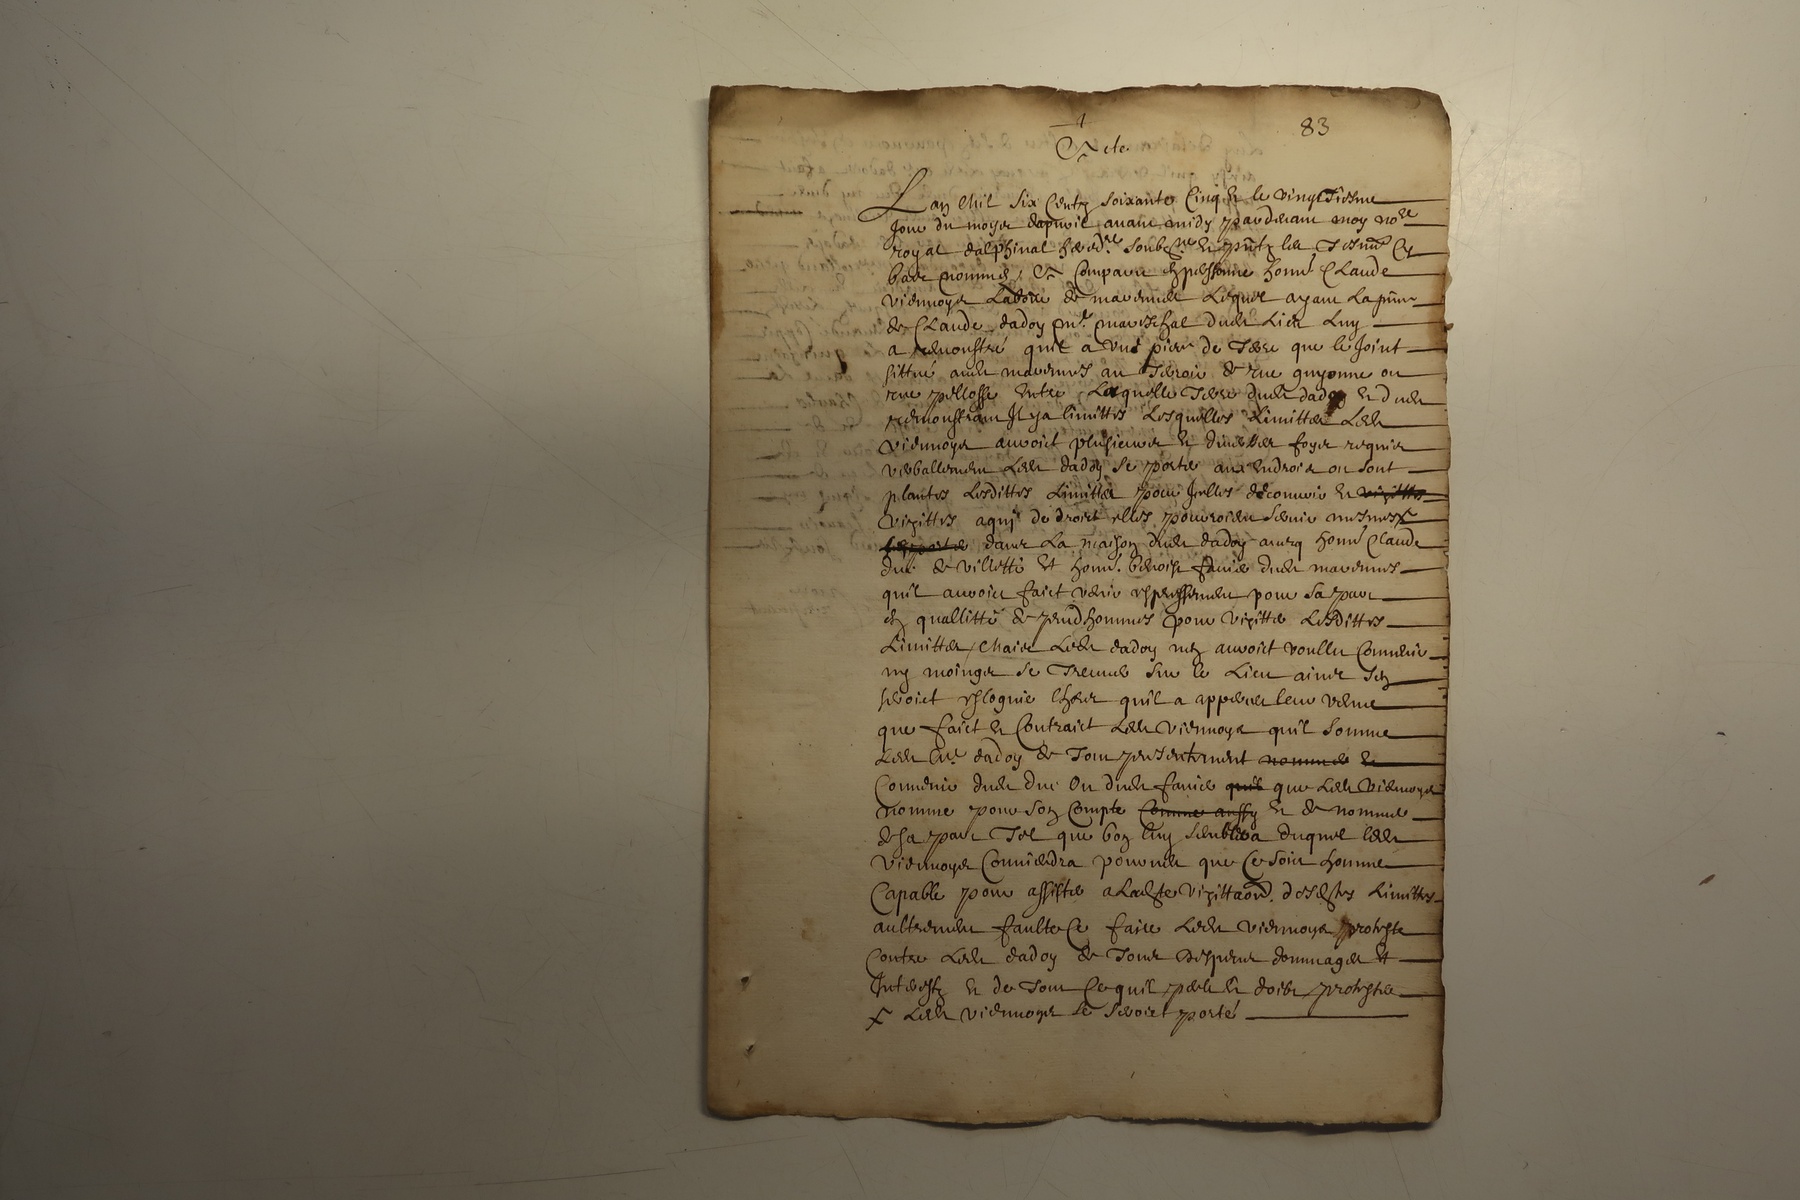 83
Acte
Lan Mil six Centz soixante Cinq et le vingtiesme
Jour du moys dapvril avant midy pardevant moy nore
royal dalphinal hered.re soubzne et pntz les Tesm
bas nommes, A Comparu en personne honn. Claude
Viennoys Labour de marennes Lequel ayant La pnce
de Claude dadoy m.e mareschal dudt Lieu Luy
a remonstré quil a une piece de Terre que le Joint
sittué audt marennes au Terroir de rue guyonne ou
rue pellosse Entre Laquelle Terre dudt dadoy et dudt
remonstrant Il y a limittes Lesquelles Limittes Ledt
Viennoys auroict plusieurs et diverses foys requis
verballement Ledt dadoy se porter aux endrois ou sont
plantes Lesdittes Limittes pour Jcelles découvrir et vizittes
Vizittes a qui de droict elles pourroient servir mesmes x
dans La maison dudt dadoy avecq honn. Claude
duc de villette Et honn. benoist favier dudt marennes
quil auroict faict venir expressement pour sa part
en quallitté de prudhommes pour vizitter Lesdittes
Limittes, Mais Ledt dadoy nen auroict voullu Convenir
ny moings se Treuver sur le Lieu ains sen
seroict eslognie
que faict et Contraict Ledt Viennoys quil somme
Ledt m.e dadoy de Tout presentement nommer et
Convenir dudt duc Ou dudt favier que Ledt Viennoys
nomme pour son Compte Comme aussy et de nommer
de sa part Tel que bon luy semblera duquel ledt
Viennoys Conviendra pourveu que Ce soit homme
Capable pour assister a Ladte vizittaon. desdtes Limittes
aultrement faulte Ce faire Ledt Viennoys proteste
Contre Ledt dadoy de Tous despens dommages Et
Interestz et de Tout Ce quil peult et doibt protester
x Ledt Viennoys se seroict porté